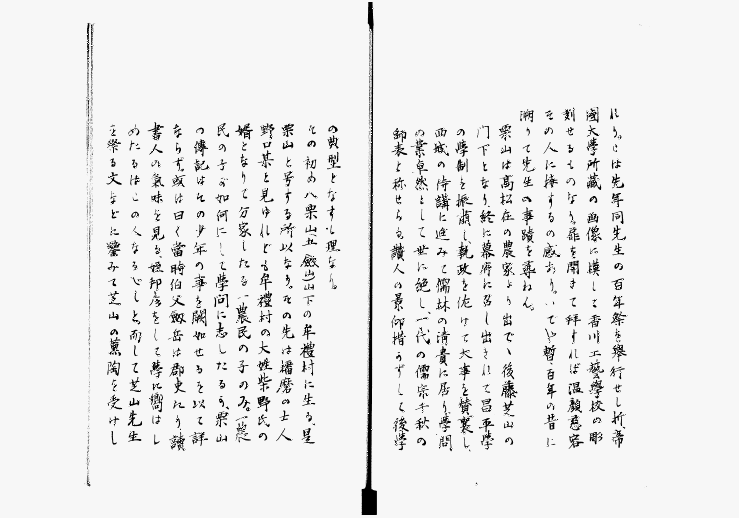 れり。こは先年同先生の百年祭を擧行せし折帝
國大學所藏の画像に摸して香川工藝學校の彫
刻せるものなり。扉を開きて拜すれば温顔慈容
その人に接するの感あり。いでや暫百年の昔に
溯りて先生の事蹟を尋ねん。
栗山は高松在の農家より出でゝ後藤芝山の
門下となり終に幕府に召し出されて昌平學
の學制を振肅し執政を佐けて大事を賛襄し
西城の侍講に進みて儒林の清貴に居り學問
の業卓然として世に絶し一代の儒宗千秋の
師表と称せらる。讃人の景仰措かずして後學
の典型となすも理なり。
その初め八栗山五劔山下の牟禮村に生る。是
栗山と号する所以なり。その先は播磨の士人
野口某と見ゆれども牟禮村の大姓柴野氏の
婿となりて分家したる一農民の子のみ。一農
民の子が如何にして學問に志したるか。栗山
の傳記はその少年の事を闕如せるを以て詳
ならず。或は曰く當時伯父劔岳は郡吏たり讀
書人の氣味を見る。姪邦彦をして學に嚮はし
めたるはこの人なるべしと。而して芝山先生
を祭る文などに鑒みて芝山の薫陶を受けし